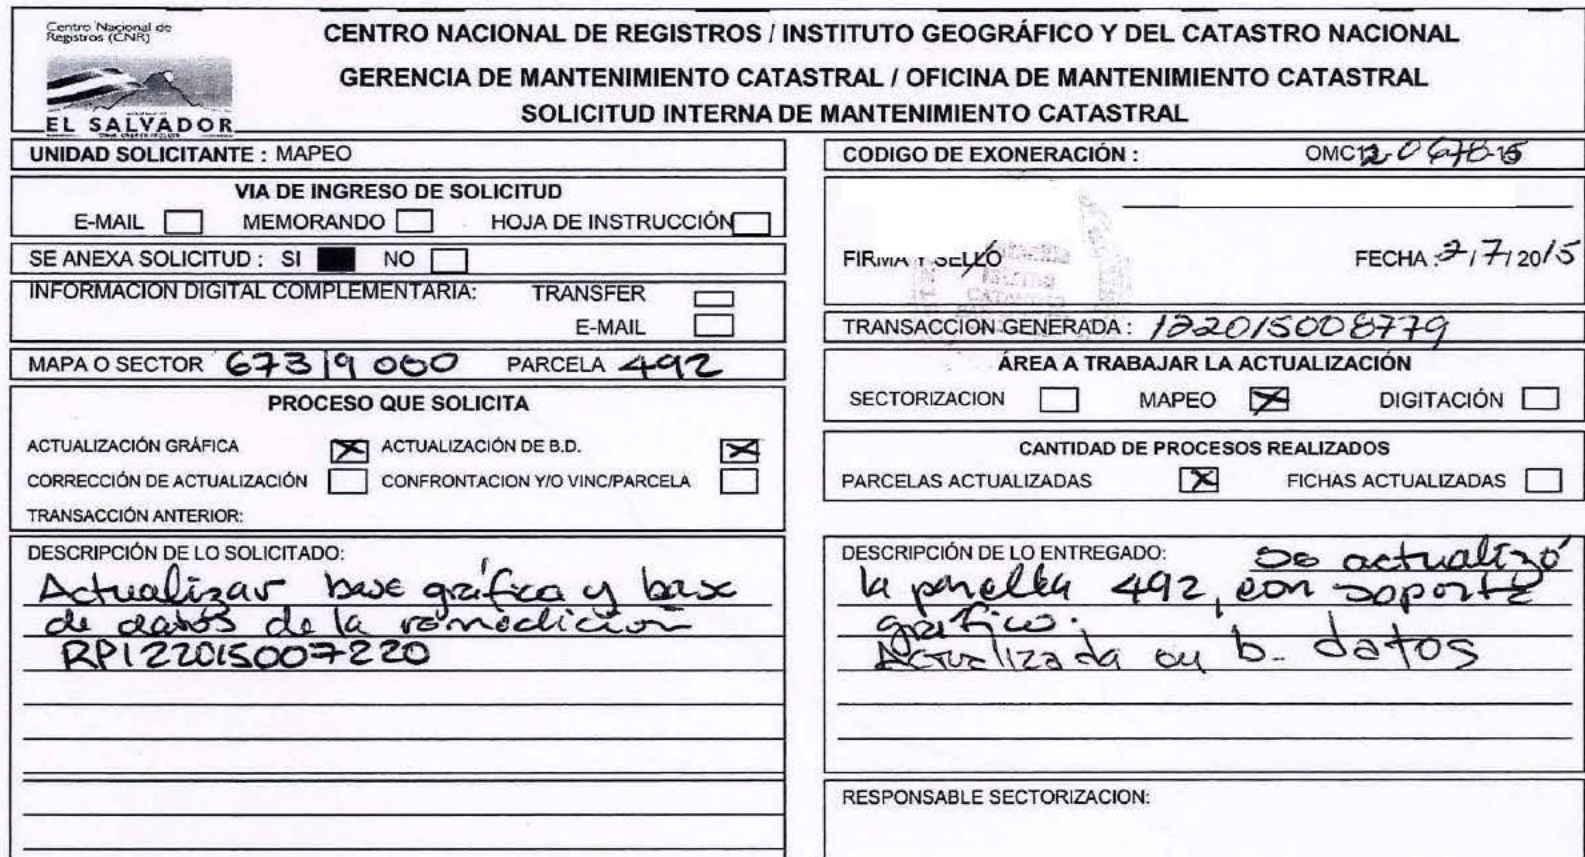 Centro Nacional de
Registros (CNR)
EL SALVADOR
CENTRO NACIONAL DE REGISTROS / INSTITUTO GEOGRÁFICO Y DEL CATASTRO NACIONAL
GERENCIA DE MANTENIMIENTO CATASTRAL / OFICINA DE MANTENIMIENTO CATASTRAL
SOLICITUD INTERNA DE MANTENIMIENTO CATASTRAL
UNIDAD SOLICITANTE : MAPEO
VIA DE INGRESO DE SOLICITUD
E-MAIL MEMORANDO HOJA DE INSTRUCCIÓN
SE ANEXA SOLICITUD : SI NO
INFORMACION DIGITAL COMPLEMENTARIA: TRANSFER
E-MAIL
MAPA O SECTOR 67319000 PARCELA 492
PROCESO QUE SOLICITA
ACTUALIZACIÓN GRÁFICA X ACTUALIZACIÓN DE B.D. X
CORRECCIÓN DE ACTUALIZACIÓN CONFRONTACION Y/O VINC/PARCELA
TRANSACCIÓN ANTERIOR:
DESCRIPCIÓN DE LO SOLICITADO:
Actualizar base gráfica y base
de datos de la remedición
RP122015007220
CODIGO DE EXONERACIÓN : OMC12-0678-15
FIRMA Y SELLO FECHA : 2/7/2015
TRANSACCION GENERADA : 122015008779
ÁREA A TRABAJAR LA ACTUALIZACIÓN
SECTORIZACION MAPEO X DIGITACIÓN
CANTIDAD DE PROCESOS REALIZADOS
PARCELAS ACTUALIZADAS X FICHAS ACTUALIZADAS
DESCRIPCIÓN DE LO ENTREGADO: Se actualizó
la 492, con soporte
gráfico.
Actualizada en b. datos
RESPONSABLE SECTORIZACION: